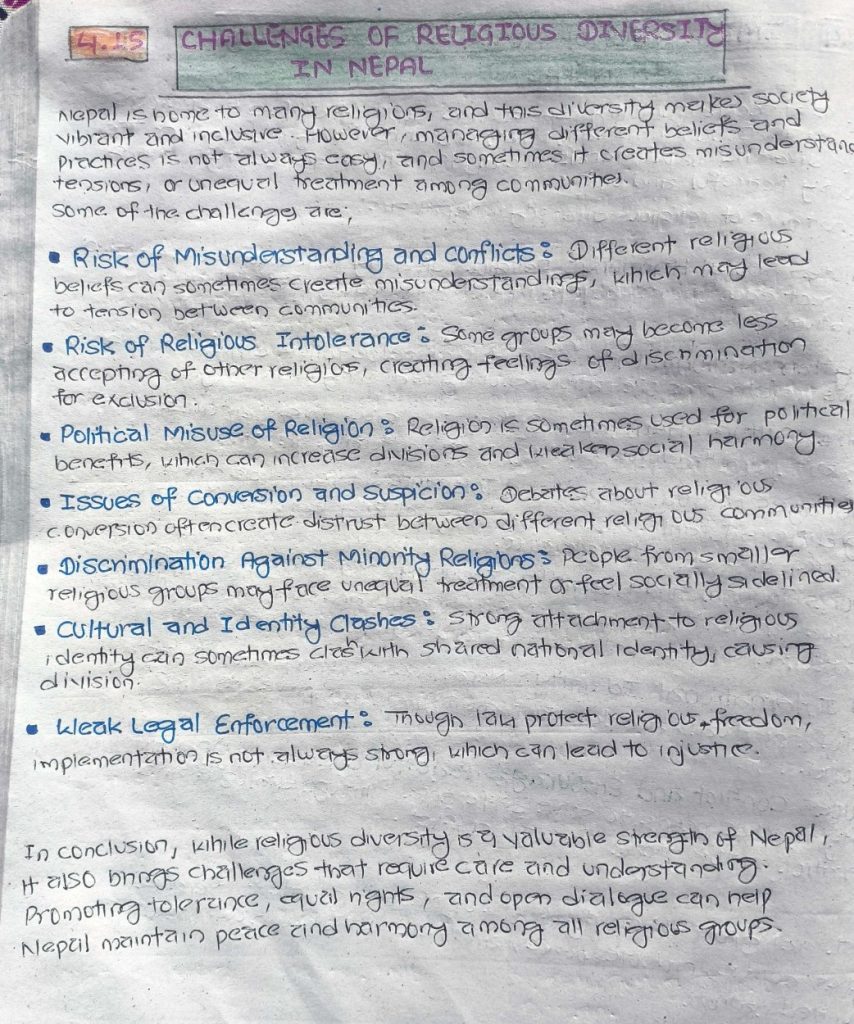 4.15 CHALLENGES OF RELIGIOUS DIVERSITY
IN NEPAL
Nepal is home to many religions, and this diversity makes society
vibrant and inclusive. However, managing different beliefs and
practices is not always easy, and sometimes it creates misunderstan
tensions, or unequal treatment among communities.
some of the challenges are;
• Risk of Misunderstanding and conflicts: Different religious
beliefs can sometimes create misunderstandings, which may lead
to tension between communities.
• Risk of Religious Intolerance: Some groups may become less
accepting of other religios, creating feelings of discrimination
for exclusion.
• Political Misuse of Religion: Religion is sometimes used for political
benefits, which can increase divisions and weaken social harmony.
• Issues of Conversion and Suspicion: Debates about religious
conversion often create distrust between different religious communities
• Discrimination Against Minority Religions: People from smaller
religious groups may face unequal treatment or feel socially sidelined.
• Cultural and Identity Clashes: Strong attachment to religious
identity can sometimes clash with shared national identity, causing
division.
• Weak Legal Enforcement: Though law protect religious freedom,
implementation is not always strong, which can lead to injustice.
In conclusion, while religious diversity is a valuable strength of Nepal,
it also brings challenges that require care and understanding.
Promoting tolerance, equal rights, and open dialogue can help
Nepal maintain peace and harmony among all religious groups.